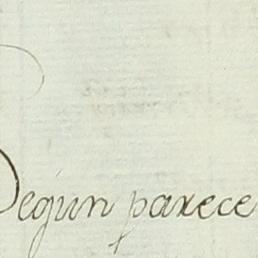 Segun parece